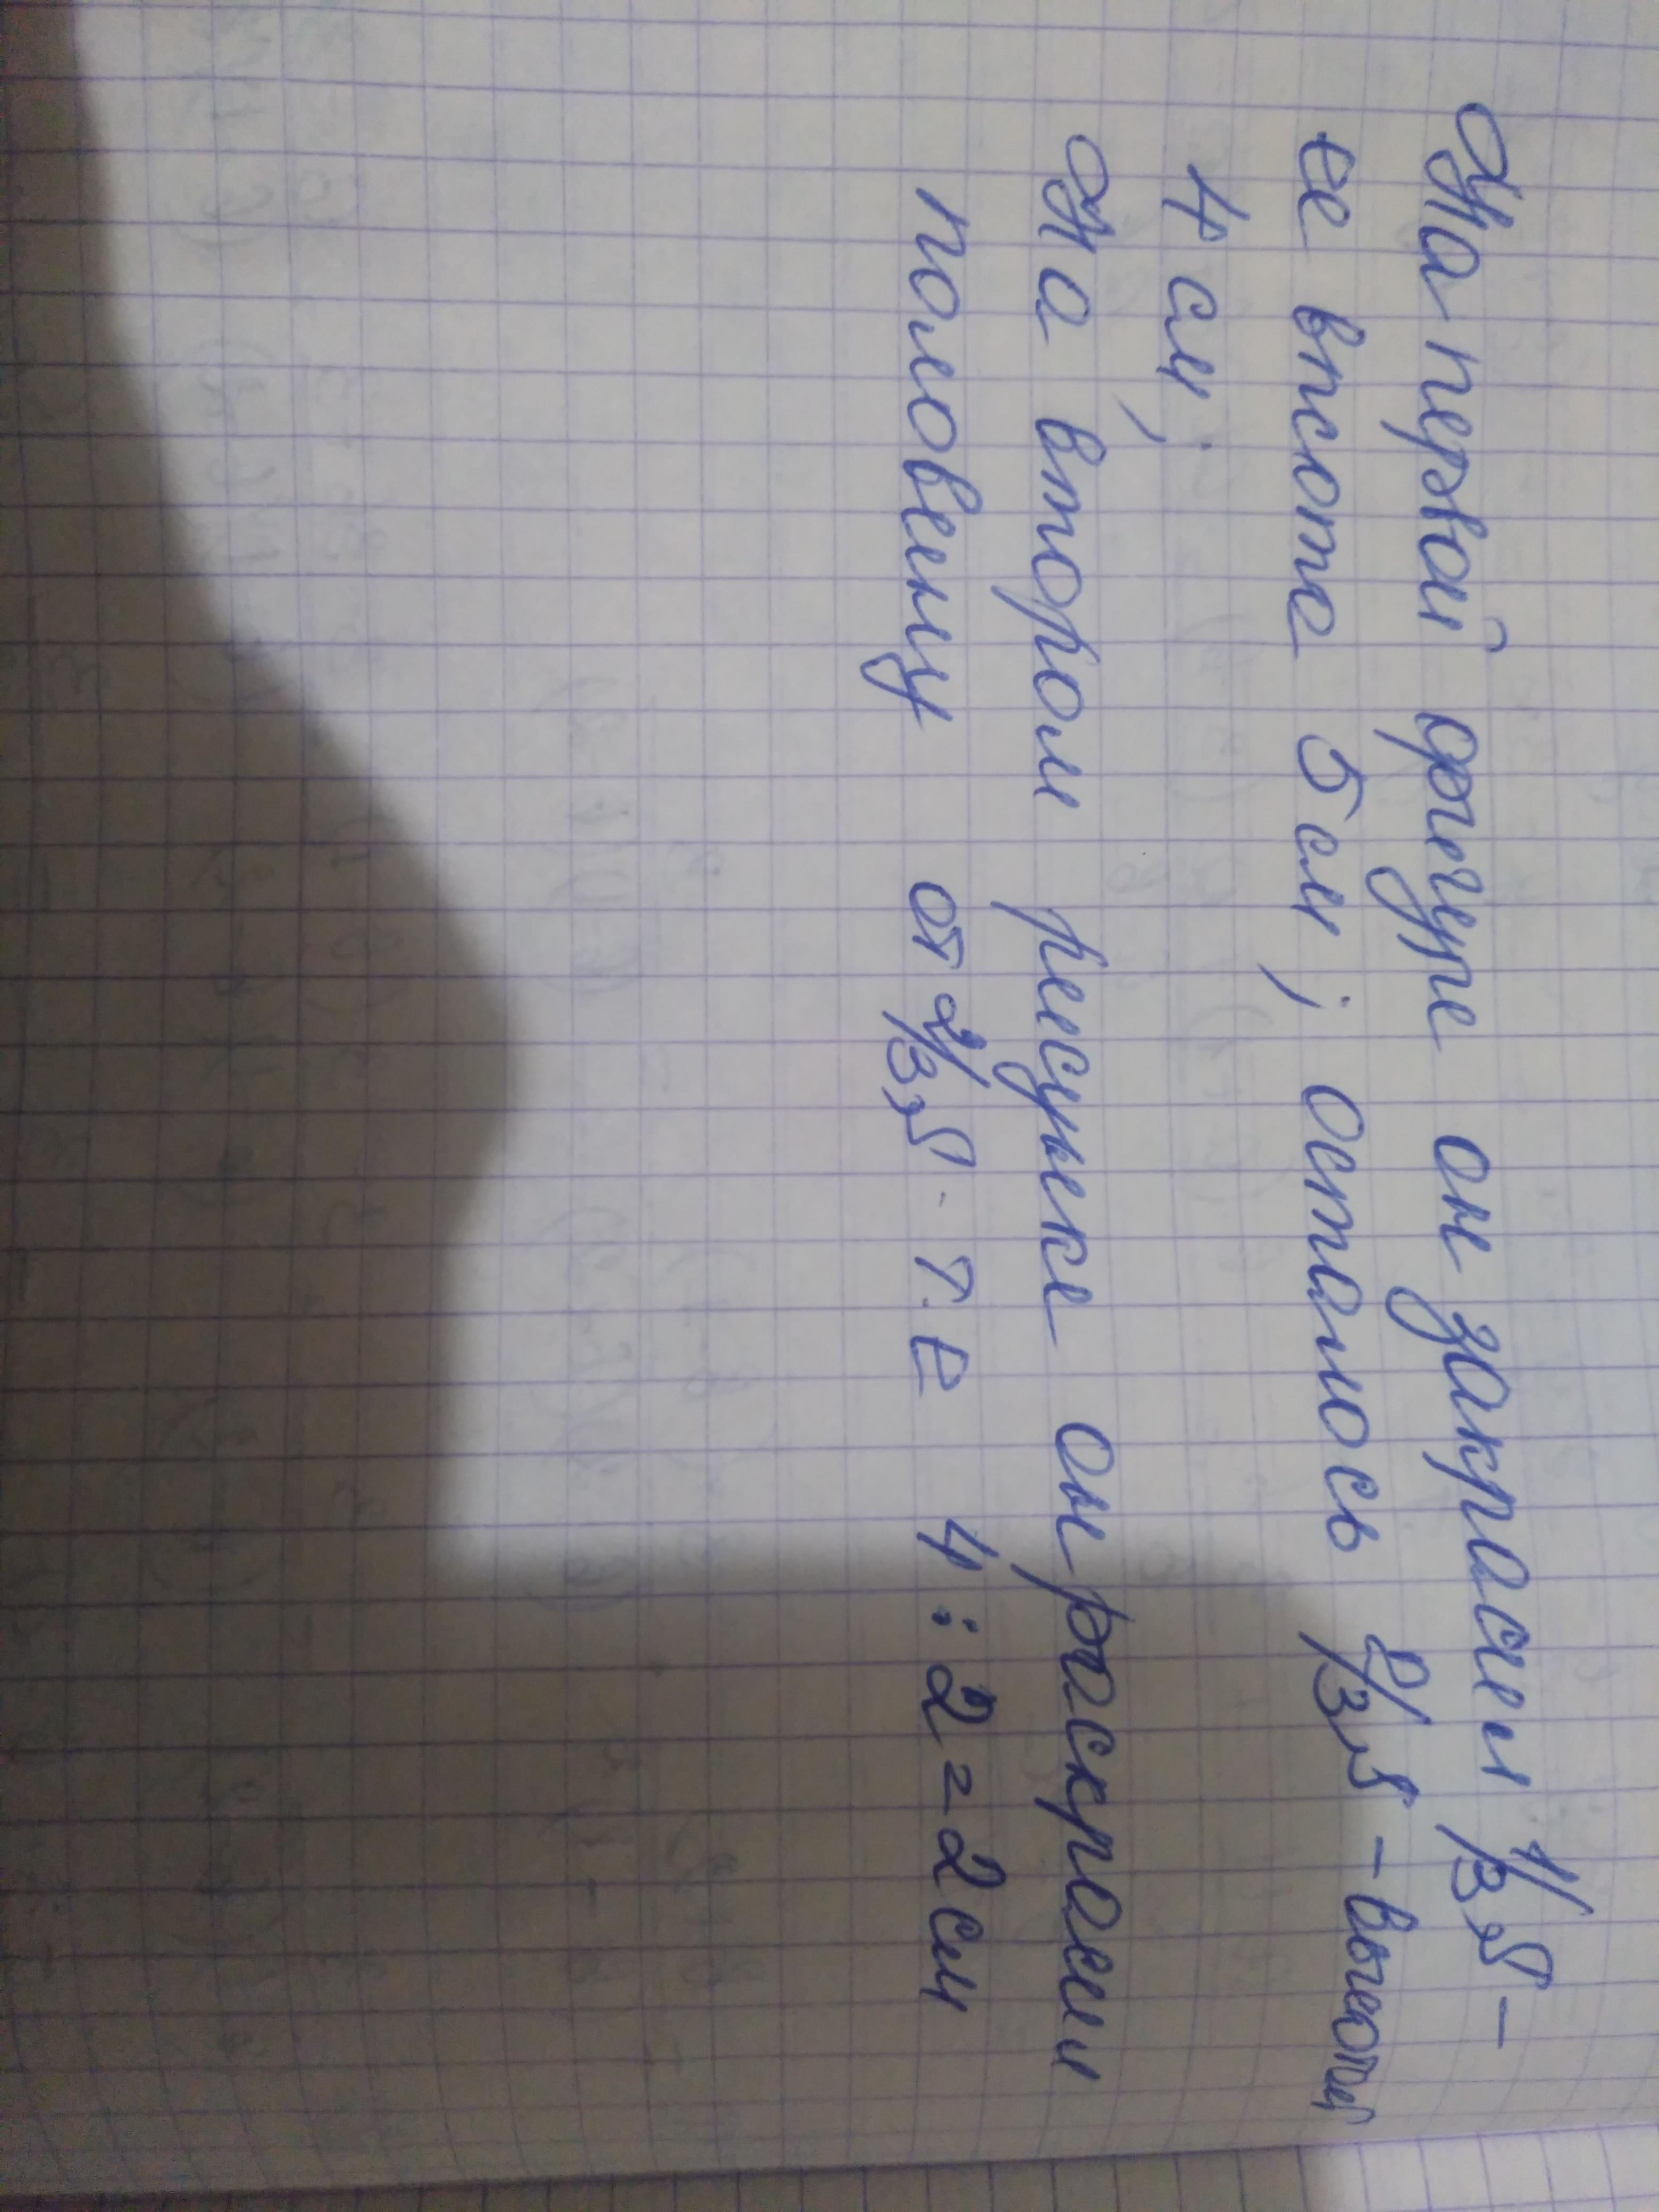 На первой фигуре он закрасил 1/3 S -
ее всоте 5 см; осталось 2/3 S - высоты
4 см;
На втором рисунке он раскрасил
половину от 2/3 S. т.е 4:2=2см